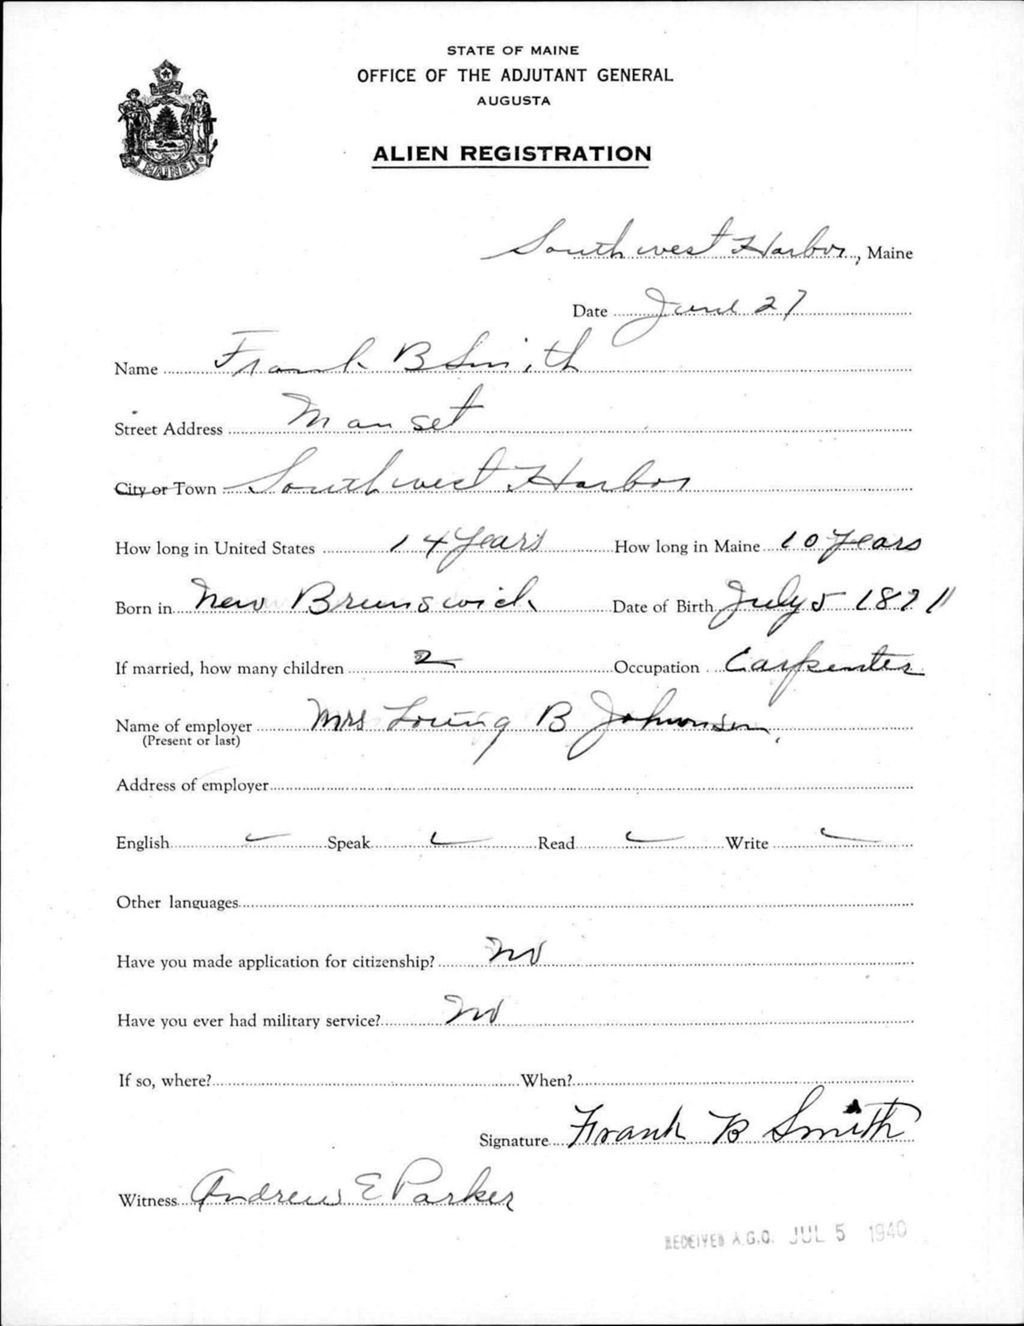 STATE OF MAINE
OFFICE OF THE ADJUTANT GENERAL
AUGUSTA
ALIEN REGISTRATION
MAINE
Southwest Harbor, Maine
Date June 27
Name Frank B Smith
Street Address Manset
City or Town Southwest Harbor
How long in United States 14 years How long in Maine 10 years
Born in New Brunswick Date of Birth July 5 1871
If married, how many children 2 Occupation Carpenter
Name of employer Mrs B
(Present or last)
Address of employer
English ✓ Speak ✓ Read ✓ Write ✓
Other languages
Have you made application for citizenship? No
Have you ever had military service? No
If so, where? When?
Signature Frank B Smith
Witness Andrew E Parker
RECEIVED A.G.O. JUL 5 1940